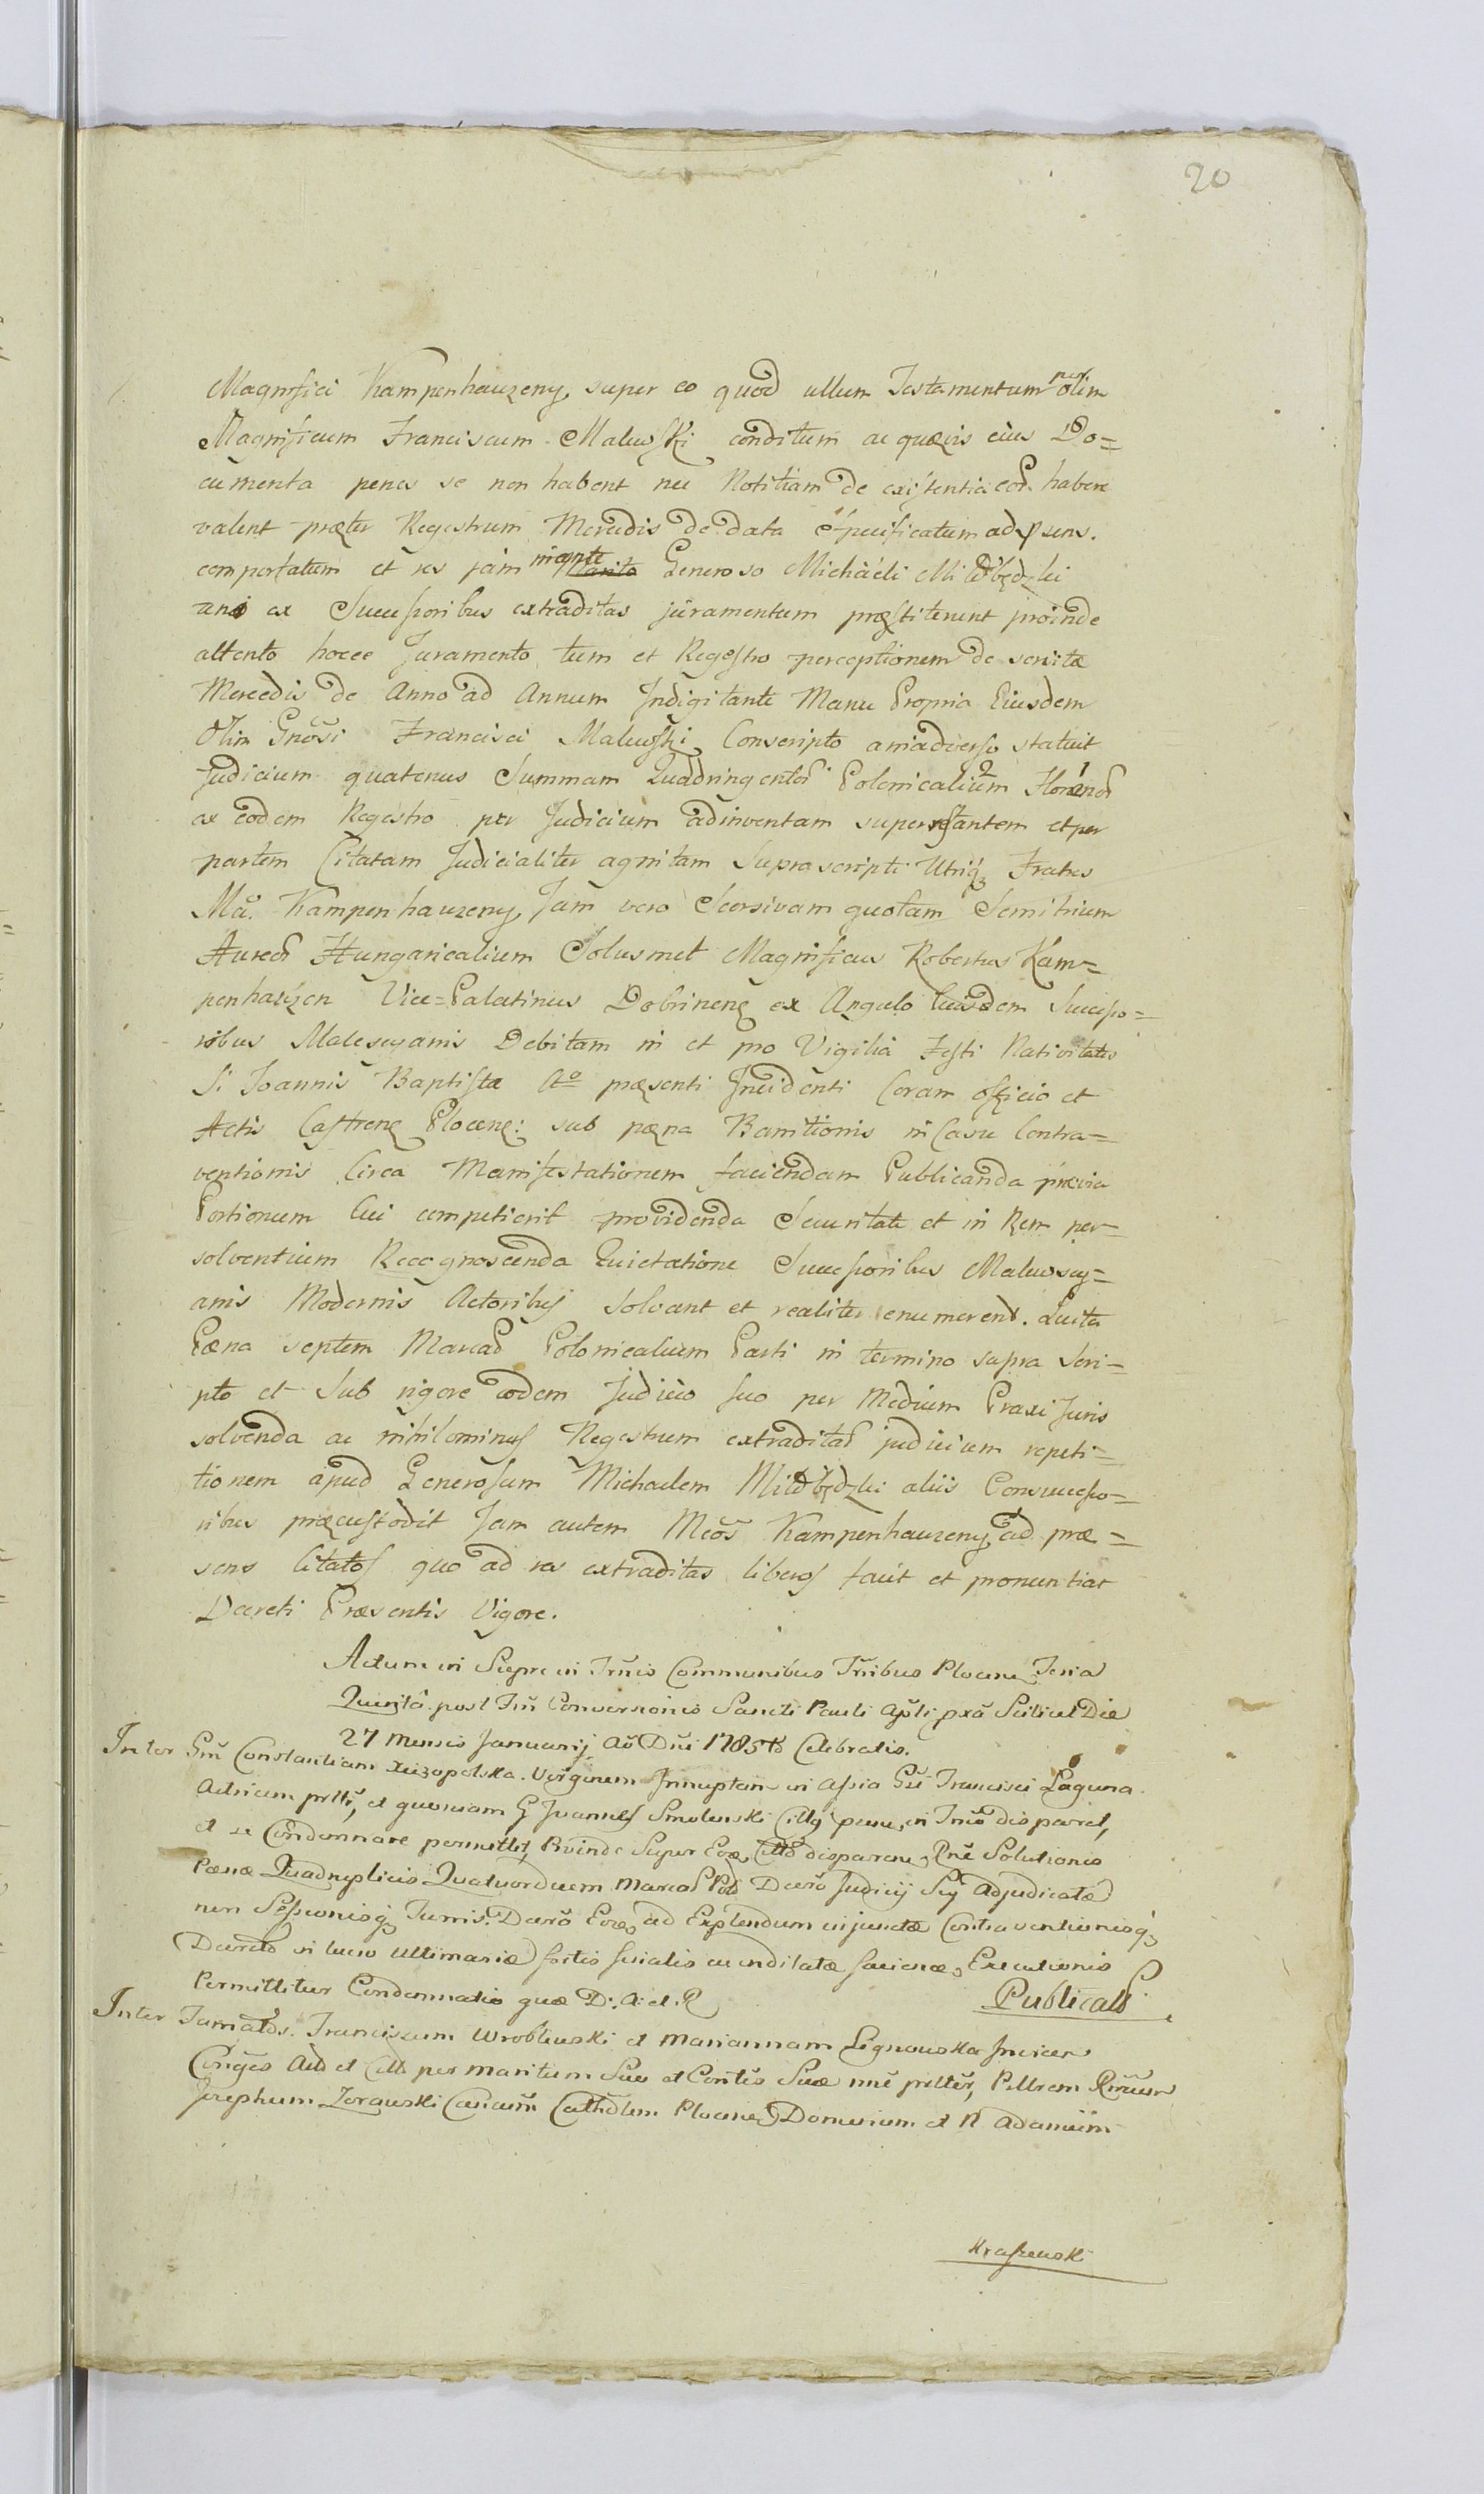 20
Magnifici Kampenhauzeny, super eo quod ullum Testamentum per olim
Magnificum Franciscum Malewski conditum ac quævis eius Do=
cumenta penes se non habent nec Notitiam de existentia eor. habere
valent præter Regestrum Mercedis de data specificatum ad psens.
comportatum et res jam Generoso Michaeli Mildbędzki
uni ex Successoribus extraditas juramentum præstiterunt proinde
attento hocce Juramento tum et Regestro perceptionem de servita
Mercedis de Anno ad Annum Indigitante Manu Propria Eiusdem
Olim Gnosi Francisci Malewski Conscripto amadverso statuit
Judicium quatenus Summam Quadringentor Polonicalium Florenor
ex eodem Regestro per Judicium adinventam superrestantem et per
partem Citatam Judicialiter agnitam Suprascripti Utriq Fratres
Mci. Kampenhauzeny, Jam vero Seorsivam quotam Semitrium
Aureor Hungaricalium Solusmet Magnificus Robertus Kam=
penhauzen Vice=Palatinus Dobrinens ex Angulo Eiusdem Successo=
ribus Malescyanis Debitam in et pro Vigilia Festi Nativitatis
S. Joannis Baptistæ Ao præsenti Incidenti Coram officio et
Actis Castrens Plocens: sub pæna Banitionis in Casu Contra=
ventionis Circa Manifestationem faciendam Publicanda prævia
Portionum Cui competierit providenda Securitate et in Rem per=
solventium Recognoscenda Quietatione Successoribus Malewscy=
anis Modernis Actoribus solvant et realiter enumerent. Luita
Pæna septem Marcar Polonicalium Parti in termino supra scri=
pto et sub rigore eodem Judicio suo per Medium Praxi Juris
solvenda ac nihilominus Regestrum extraditar judicium repeti=
tionem apud Generosum Michaelem Mildbędzki aliis Consuccesso=
ribus præcustodit Jam autem Mcos Kampenhauzeny, ad præ=
sens Citatos quo ad res extraditas liberos facit et pronuntiat
Decreti Præsentis Vigore.
Actum in Sierpc in Trnis Communibus Trribus Plocens Feria
Quinta post Fm Conversionis Sancti Pauli Apli pxa Scilicet Die
27 Mensis Januarij Ao Dni 1785to Celebratis.
Inter Gm Constantiam Virginem Innuptam in Assia Gsi Francisci Laguna
Actricem prtte, et quoniam G Joannes Smolenski Cittg pune, in Trno disparet,
et se Condemnare permittit, Proinde Super Eoz, Citto disparen, Rne Solutionis
Pænæ Quadruplicis Quatuordecem Marcar Pol Decro Judicij Sui Adjudicatæ
nen Sessionisq Turris. Decro Eoz, ad Explendum injunctæ Contraventionisq
Decreto in lucro Ultimariæ sortis feriatis facienæ, Executionis
Permittitur Condemnatio quæ D: A: et R
Publicat
Inter Franciscum Wroblewski et Mariannam Lignowska Invicem
Conges Act et Citt per maritum Suu et Contes Suæ nne prtter, Pttrem Rmum
Josephum Zorawski Cathdlem Plocens Domerium et N Adamum
Kraszewski